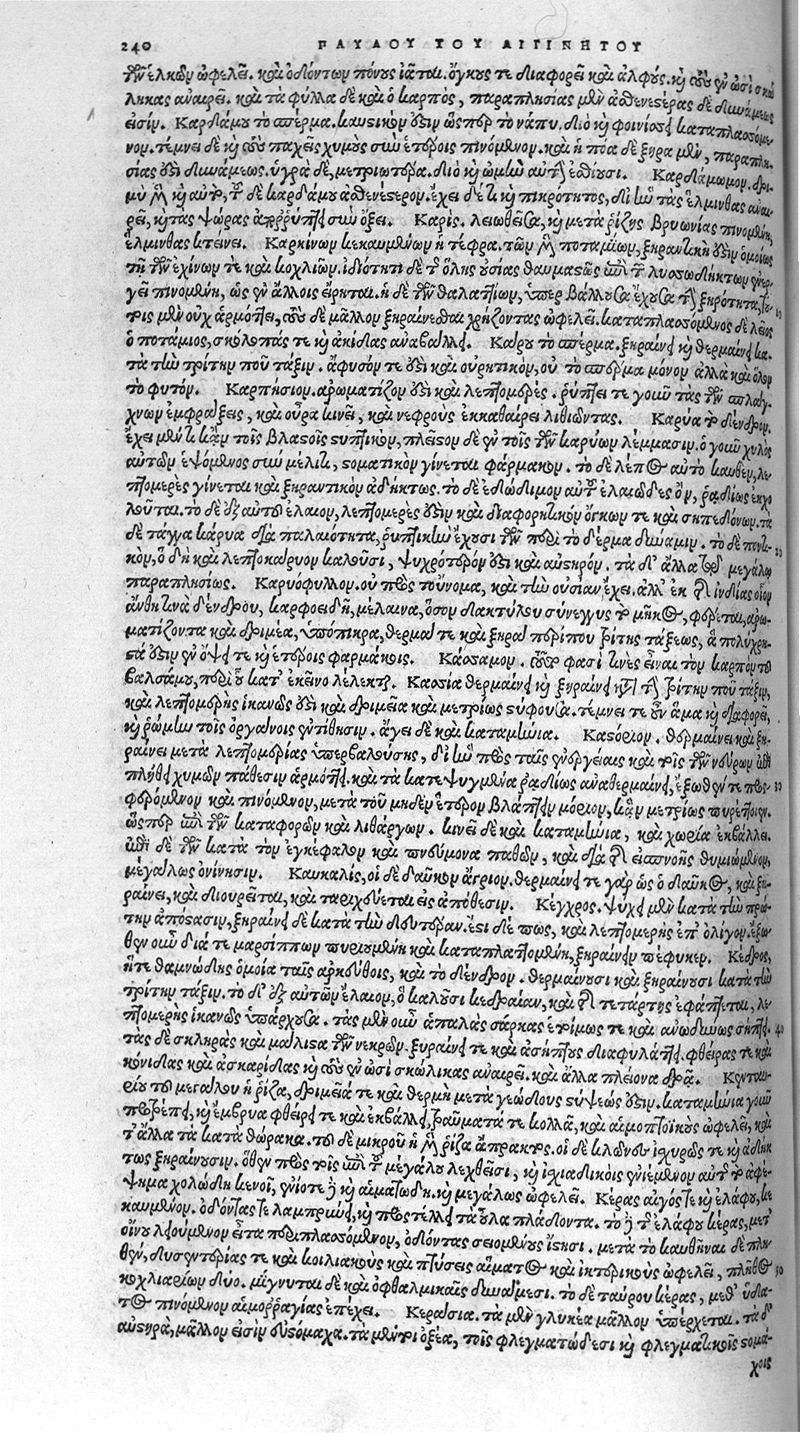 240 ΠΑΥΛΟΥ ΤΟΥ ΑΙΓΙΝΗΤΟΥ
τῶν ἑλκῶν ὠφελεῖ. καὶ ὀδόντων πόνους ἰᾶται. ὄγκους τε διαφορεῖ καὶ ἀλφούς. καὶ τοὺς ἐν ὠσὶ σκώ
ληκας ἀναιρεῖ. καὶ τὰ φύλλα δὲ καὶ ὁ καρπὸς, παραπλησίας μὲν ἀσθενεστέρας δὲ δυνάμεως
εἰσίν. Καρδάμου τὸ σπέρμα. καυστικόν ἐστιν ὥσπερ τὸ νάπυ. διὸ καὶ φοινίσσει καταπλασσόμε
νον. τέμνει δὲ καὶ τοὺς παχεῖς χυμοὺς σὺν ἑτέροις πινόμενον. καὶ ἡ πόα δὲ ξηρὰ μὲν, παραπλη
σίας ἐστὶ δυνάμεως. ὑγρὰ δὲ, μετριωτέρα. διὸ καὶ ὠμὴν αὐτὴν ἐσθίουσι. Καρδάμωμον. δρι
μὺ μὲν καὶ αὐτὸ, τοῦ δὲ καρδάμου ἀσθενέστερον. ἔχει δέ τι καὶ πικρότητος, δι' ἣν τὰς ἕλμινθας ἀναι
ρεῖ, καὶ τὰς ψώρας ἀπορρύπτει σὺν ὄξει. Καρίς. λειωθεῖσα, καὶ μετὰ ῥίζης βρυωνίας πινομένη,
ἕλμινθας κτείνει. Καρκίνων κεκαυμένων ἡ τέφρα. τῶν μὲν ποταμίων, ξηραντική ἐστιν ὁμοίως
τῇ τῶν ἐχίνων τε καὶ κοχλιῶν. ἰδιότητι δὲ τῆς ὅλης οὐσίας θαυμαστῶς ἐπὶ τῶν λυσσοδήκτων ἐνερ
γεῖ πινομένη, ὡς ἐν ἄλλοις εἴρηται. ἡ δὲ τῶν θαλαττίων, ὑπερβάλλουσα ἔχουσα τὴν ξηρότητα,
τοῖς μὲν οὐχ ἁρμόττει, τοὺς δὲ μᾶλλον ξηραίνεσθαι χρῄζοντας ὠφελεῖ. καταπλασσόμενος δὲ λεῖος
ὁ ποτάμιος, σκόλοπάς τε καὶ ἀκίδας ἀναβάλλει. Κάρου τὸ σπέρμα. ξηραίνει καὶ θερμαίνει κα
τὰ τὴν τρίτην που τάξιν. ἄφυσόν τε ἐστὶ καὶ οὐρητικὸν, οὐ τὸ σπέρμα μόνον ἀλλὰ καὶ ὅλον
τὸ φυτόν. Καρπήσιον. ἀρωματίζον ἐστὶ καὶ λεπτομερές. ῥύπτει τε γοῦν τὰς τῶν σπλάγ
χνων ἐμφράξεις, καὶ οὖρα κινεῖ, καὶ νεφροὺς ἐκκαθαίρει λιθιῶντας. Καρύα τὸ δένδρον.
ἔχει μέν τι κἂν τοῖς βλαστοῖς στυπτικὸν, πλεῖστον δὲ ἐν τοῖς τῶν καρύων λέμμασιν. ὁ γοῦν χυλὸς
αὐτῶν ἑψόμενος σὺν μέλιτι, στοματικὸν γίνεται φάρμακον. τὸ δὲ λέπος αὐτὸ καυθὲν, λε
πτομερὲς γίνεται καὶ ξηραντικὸν ἀδήκτως. τὸ δὲ ἐδώδιμον αὐτοῦ ἐλαιῶδες ὂν, ῥᾳδίως ἐκχο
λοῦται. τὸ δὲ ἐξ αὐτοῦ ἔλαιον, λεπτομερές ἐστιν καὶ διαφορητικὸν ὄγκων τε καὶ σηπεδόνων. τὰ
δὲ ταγγὰ κάρυα διὰ παλαιότητα, ῥυπτικὴν ἔχουσι τῶν περὶ τὸ δέρμα δύναμιν. τὸ δὲ ποντι
κὸν, ὃ δὴ καὶ λεπτοκάρυον καλοῦσι, ψυχρότερόν ἐστι καὶ αὐστηρόν. τὰ δ' ἄλλα τῷ μεγάλῳ
παραπλησίως. Καρυόφυλλον. οὐ πρὸς τοὔνομα, καὶ τὴν οὐσίαν ἔχει. ἀλλ' ἐκ τῆς ἰνδίας οἷον
ἄνθη τινὰ δένδρου, καρφοειδῆ, μέλαινα, ὅσον δακτύλου σύνεγγυς τὸ μῆκος, φέρεται, ἀρω
ματίζοντα καὶ δριμέα, ὑπόπικρα, θερμά τε καὶ ξηρὰ περί που τρίτης τάξεως, ἃ πολύχρη
στά ἐστιν ἐν ὄψοις τε καὶ ἑτέροις φαρμάκοις. Κάσαμον. τοῦτο φασί τινες εἶναι τὸν καρπὸν τοῦ
βαλσάμου, περὶ οὗ κατ' ἐκεῖνο λέλεκται. Κασία θερμαίνει καὶ ξηραίνει κατὰ τὴν τρίτην που τάξιν,
καὶ λεπτομερὴς ἱκανῶς ἐστι καὶ δριμεῖα καὶ μετρίως στύφουσα. τέμνει τε οὖν ἅμα καὶ διαφορεῖ,
καὶ ῥώμην τοῖς ὀργάνοις ἐντίθησιν. ἄγει δὲ καὶ καταμήνια. Καστόριον. θερμαίνει καὶ ξη
ραίνει μετὰ λεπτομερίας ὑπερβαλούσης, δι' ἣν πρὸς ταῖς ἐνεργείαις καὶ τοῖς τῶν νεύρων ἐπὶ
πλήθει χυμῶν πάθεσιν ἁρμόττει. καὶ τὰ κατεψυγμένα ῥᾳδίως ἀναθερμαίνει, ἔξωθέν τε προσ
φερόμενον καὶ πινόμενον, μετὰ τοῦ μηδὲν ἕτερον βλάπτειν μόριον, κἂν μετρίως πυρέττοιεν.
ὥσπερ ἐπὶ τῶν καταφορῶν καὶ ληθάργων. κινεῖ δὲ καὶ καταμήνια, καὶ χωρία ἐκβάλλει.
ἐπὶ δὲ τῶν κατὰ τὸν ἐγκέφαλον καὶ πνεύμονα παθῶν, καὶ διὰ τῆς εἰσπνοῆς θυμιώμενον,
μεγάλως ὀνίνησιν. Καυκαλὶς, οἱ δὲ δαῦκον ἄγριον. θερμαίνει τε γὰρ ὡς ὁ δαῦκος, καὶ ξη
ραίνει, καὶ διουρεῖται, καὶ ταριχεύεται εἰς ἀπόθεσιν. Κέγχρος. ψύχει μὲν κατὰ τὴν πρώ
την ἀπόστασιν, ξηραίνει δὲ κατὰ τὴν δευτέραν. ἔστι δέ πως, καὶ λεπτομερὴς ἐπ' ὀλίγον. ἔξω
θεν οὖν διά τε μαρσίππων πυριωμένη καὶ καταπλαττομένη, ξηραίνειν πέφυκεν. Κέδρος,
ἥτε θαμνώδης ὁμοία ταῖς ἀρκεύθοις, καὶ τὸ δένδρον. θερμαίνουσι καὶ ξηραίνουσι κατὰ τὴν
τρίτην τάξιν. τὸ δ' ἐξ αὐτῶν ἔλαιον, ὃ καλοῦσι κεδραίαν, καὶ τῆς τετάρτης ἐφάπτεται, λε
πτομερὴς ἱκανῶς ὑπάρχουσα. τὰς μὲν οὖν ἁπαλὰς σάρκας ἑτοίμως τε καὶ ἀνωδύνως σήπει.
τὰς δὲ σκληρὰς καὶ μάλιστα τῶν νεκρῶν. ξηραίνει τε καὶ ἀσήπτους διαφυλάττει. φθείρας τε καὶ
κόνιδας καὶ ἀσκαρίδας καὶ τοὺς ἐν ὠσὶ σκώληκας ἀναιρεῖ. καὶ ἄλλα πλείονα δρᾷ. Κενταυ
ρίου τοῦ μεγάλου ἡ ῥίζα, δριμεῖά τε καὶ θερμὴ μετὰ γεώδους στύψεώς ἐστιν. καταμήνια γοῦν
προτρέπει, καὶ ἔμβρυα φθείρει τε καὶ ἐκβάλλει, τραύματά τε κολλᾷ, καὶ αἱμοπτοϊκοὺς ὠφελεῖ, καὶ
τ' ἄλλα τὰ κατὰ θώρακα. τοῦ δὲ μικροῦ ἡ μὲν ῥίζα ἄπρακτος. οἱ δὲ κλῶνες ἰσχυρῶς τε καὶ ἀδήκ
τως ξηραίνουσιν. ὅθεν πρὸς τοῖς ἐπὶ τοῦ μεγάλου λεχθεῖσι, καὶ ἰσχιαδικοῖς ἐνιέμενον αὐτοῦ τὸ ἀφέ
ψημα χολώδη κενοῖ, ἐνίοτε δὲ καὶ αἱματώδη. καὶ μεγάλως ὠφελεῖ. Κέρας αἰγός τε καὶ ἐλάφου, κε
καυμένον. ὀδόντας τε λαμπρύνει, καὶ προστέλλει τὰ οὖλα πλαδῶντα. τὸ δὲ τοῦ ἐλάφου κέρας, μετ'
οἴνου λεούμενον εἶτα περιπλασσόμενον, ὀδόντας σειομένους ἵστησι. μετὰ τὸ καυθῆναι δὲ πλη
θὲν, δυσεντερίας τε καὶ κοιλιακοὺς καὶ πτύσεις αἵματος καὶ ἰκτερικοὺς ὠφελεῖ, πλῆθος
κοχλιαρίων δύο. μίγνυται δὲ καὶ ὀφθαλμικαῖς δυνάμεσι. τὸ δὲ ταύρου κέρας, μεθ' ὕδα
τος πινόμενον αἱμορραγίας ἐπέχει. Κεράσια. τὰ μὲν γλυκέα μᾶλλον ὑπέρχεται. τὰ δ'
αὐστηρὰ, μᾶλλον εἰσὶν εὐστόμαχα. τὰ μέντοι ὀξέα, τοῖς φλεγματώδεσι καὶ φλεγματικοῖς στομά
χοις